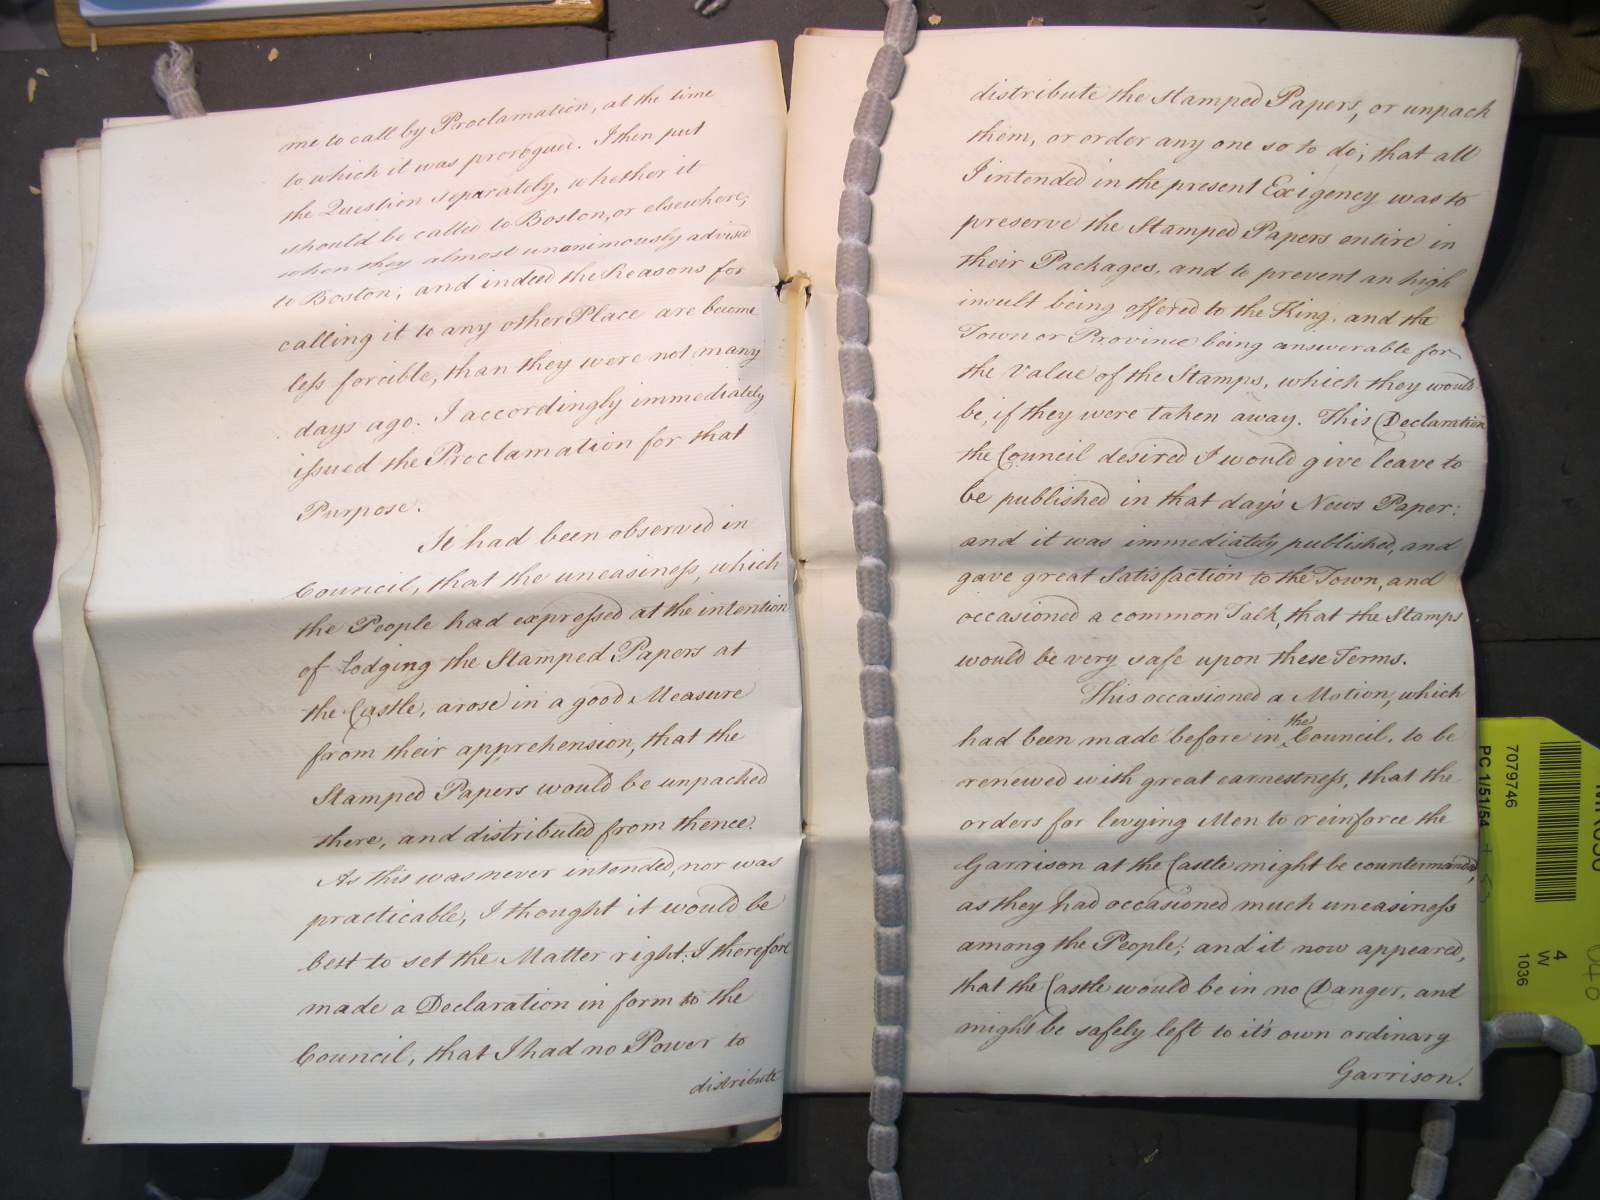 me to call by Proclamation, at the time
to which it was prorogued. I then put
the Question separately, whether it
should be called to Boston, or elsewhere;
when they almost unanimously advised
to Boston; and indeed the Reasons for
calling it to any other Place are become
less forcible, than they were not many
days ago. I accordingly immediately
issued the Proclamation for that
Purpose.
It had been observed in
Council, that the uneasiness, which
the People had expressed at the intention
of lodging the Stamped Papers at
the Castle, arose in a good Measure
from their apprehension, that the
Stamped Papers would be unpacked
there, and distributed from thence.
As this was never intended, nor was
practicable, I thought it would be
best to set the Matter right: I therefore
made a Declaration in form to the
Council, that I had no Power to
distribute
distribute the Stamped Papers, or unpack
them, or order any one so to do; that all
I intended in the present Exigency was to
preserve the Stamped Papers entire in
their Packages, and to prevent an high
insult being offered to the King, and the
Town or Province being answerable for
the Value of the Stamps, which they would
be, if they were taken away. This Declaration
the Council desired I would give leave to
be published in that day's News Paper:
and it was immediately published, and
gave great Satisfaction to the Town, and
occasioned a common Talk, that the Stamps
would be very safe upon these Terms.
This occasioned a Motion, which
had been made before in the Council, to be
renewed with great earnestness, that the
orders for levying Men to reinforce the
Garrison at the Castle might be countermanded,
as they had occasioned much uneasiness
among the People; and it now appeared,
that the Castle would be in no Danger, and
might be safely left to it's own ordinary
Garrison.
7079746
PC 1/51/54
4
W
1036